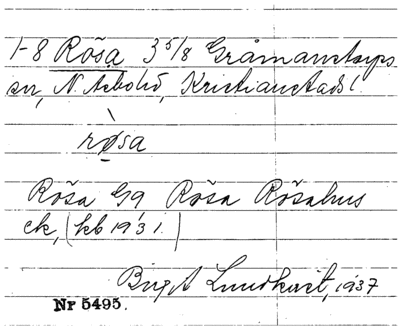 1-8 Röša 3 5/8 Gråmanstorps
sn, N. Åsbo hd, Kristianstads l.
rø̀sa
Röša G9 Röša Röšahus
ek, (kb 1931.)
Birgit Lundkvist, 1937
Nr 5495.